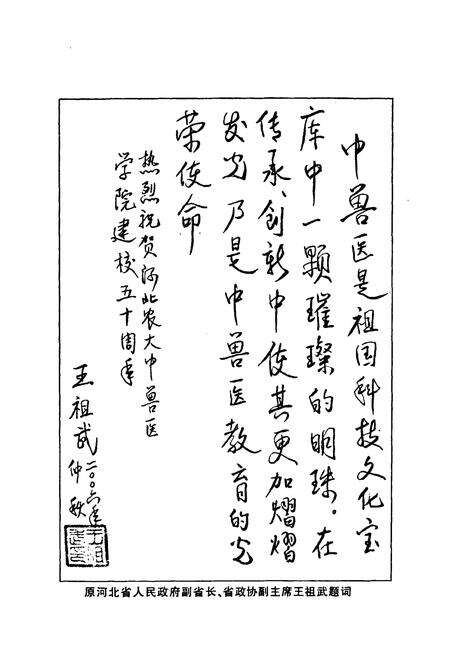 中兽医是祖国科技文化宝
库中一颗璀璨的明珠。在
传承、创新中使其更加熠熠
发光乃是中兽医教育的光
荣使命
热烈祝贺河北农大中兽医
学院建校五十周年
王祖武
二〇〇六年
仲秋
原河北省人民政府副省长、省政协副主席王祖武题词